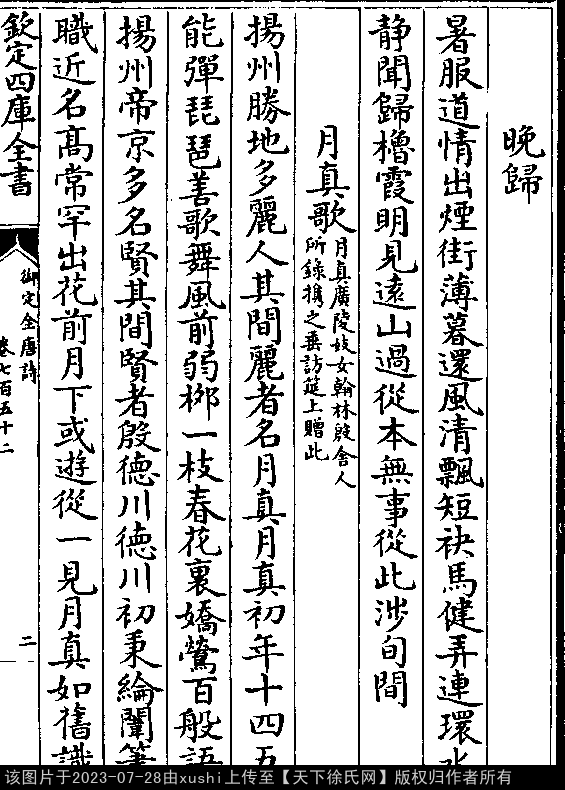 晚歸
暑服道情出煙街薄暮還風清飄短袂馬健弄連環水
静聞歸櫓霞明見遠山過從本無事從此涉旬間
月真歌
月真廣陵妓女翰林殷舍人
所錄攜之垂訪筵上贈此
揚州勝地多麗人其間麗者名月真月真初年十四五
能彈琵琶善歌舞風前弱栁一枝春花裏嬌鶯百般語
揚州帝京多名賢其間賢者殷德川德川初秉綸闈筆
職近名髙常罕出花前月下或遊從一見月真如舊識
欽定四庫全書
御定全唐詩
卷七百五十二
二
该图片于2023-07-28由xushi上传至【天下徐氏网】版权归作者所有